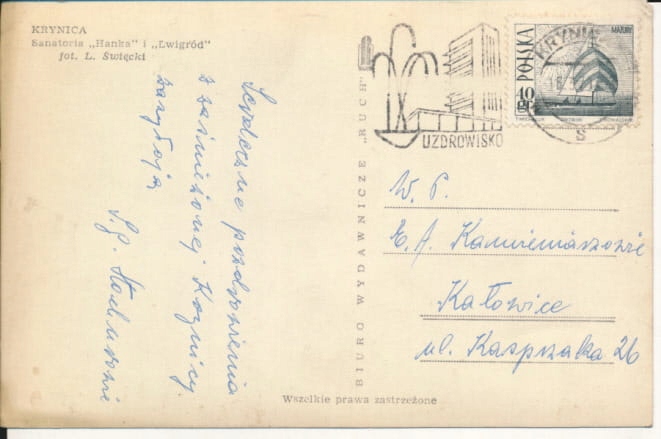 KRYNICA
Sanatoria „Hanka" i „Lwigród"
fot. L. Święcki
Serdeczne pozdrowienia
z zaśnieżonej Krynicy
zasyłają
BIURO WYDAWNICZE „RUCH"
UZDROWISKO
POLSKA
MAZURY
40 gr
KRYNI
S
W. P.
Kamieniaszowie
Katowice
ul. Kasprzaka 26
Wszelkie prawa zastrzeżone